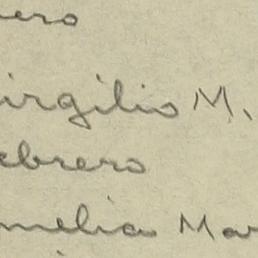 ero
irgilio M.
ebrero
melia Mar